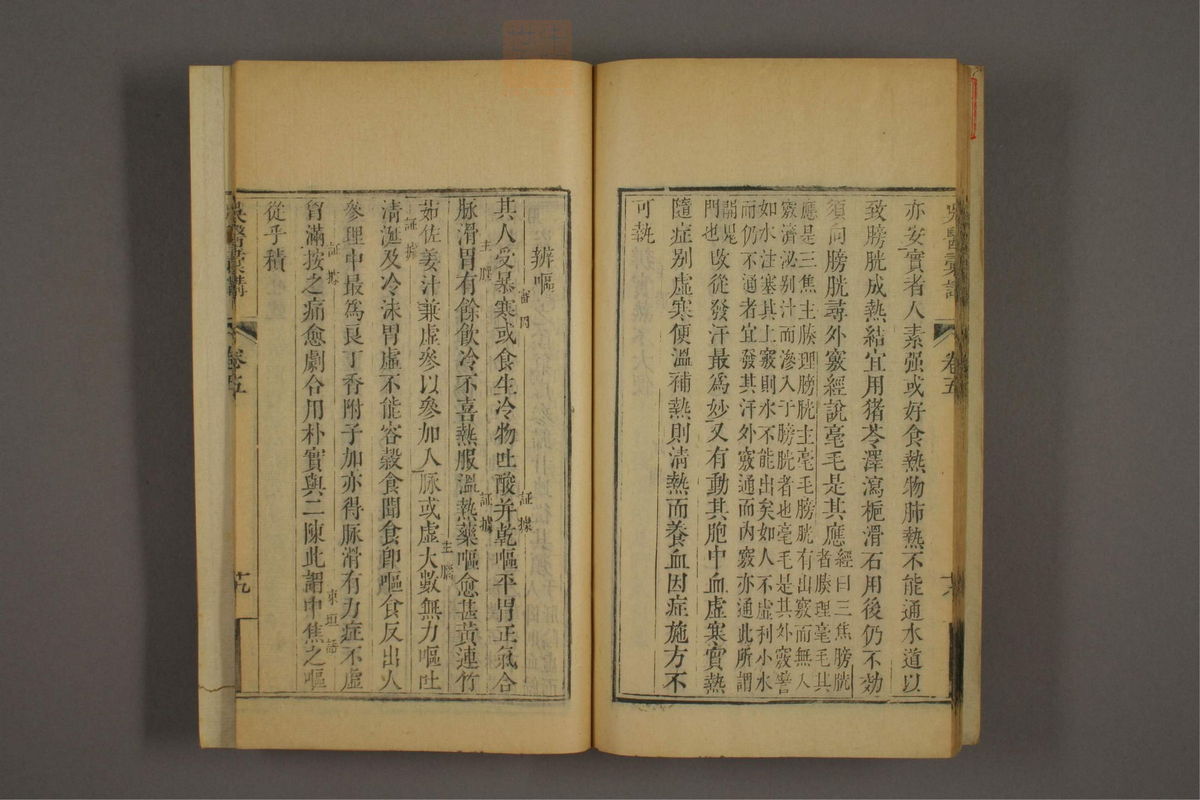 亦安實者人素强或好食熱物肺熱不能通水道以
致膀胱成熱結宜用猪苓澤瀉梔滑石用後仍不効
須问膀胱尋外竅經說毫毛是其應經曰三焦膀胱者腠理毫毛其
應是三焦主腠理膀胱主毫毛膀胱有出竅而無入
竅濟泌别汁而滲入于膀胱者也毫毛是其外竅譬
如水注塞其上竅則水不能出矣如人不虛利小水
而仍不通者宜發其汗外竅通而內竅亦通此所謂
開鬼門也改從發汗最爲妙又有動其胞中血虛寒實熱
隨症别虛寒便溫補熱則清熱而養血因症施方不
可執
卷五
辨嘔
其人受暴寒或食生冷物吐酸并乾嘔平胃正氣合
脉滑胃有餘飲冷不喜熱服溫熱藥嘔愈甚黃連竹
茹佐姜汁兼虛參以參加人脉或虛大數無力嘔吐
清涎及冷沫胃虛不能容穀食聞食卽嘔食反出人
參理中最爲良丁香附子加亦得脉滑有力症不虛
胷滿按之痛愈劇合用朴實與二陳此謂中焦之嘔
從乎積
吳醫彙講
卷五